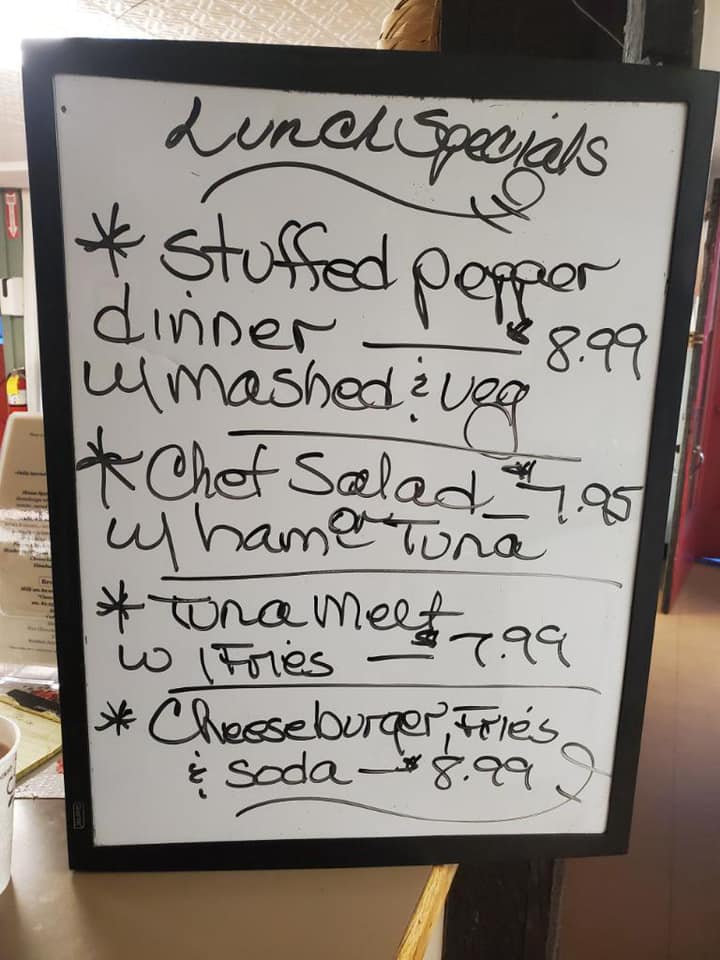 Lunch Specials
* Stuffed pepper
dinner — $8.99
w/ mashed & veg
* Chef Salad — $7.95
w/ ham or Tuna
* Tuna Melt
w/ Fries — $7.99
* Cheeseburger, Fries
& Soda — $8.99